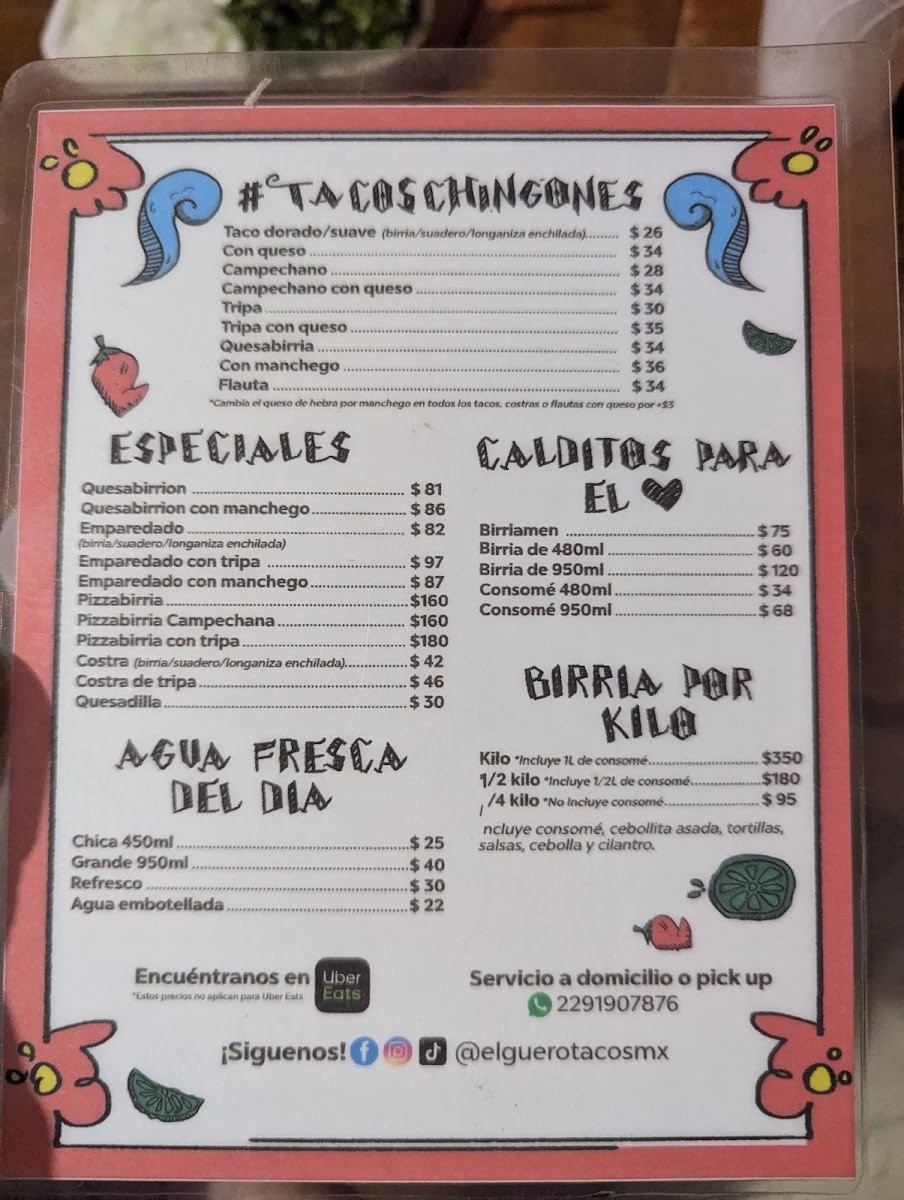 #TACOSCHINGONES
Taco dorado/suave (birria/suadero/longaniza enchilada)........ $ 26
Con queso ........ $ 34
Campechano ........ $ 28
Campechano con queso ........ $ 34
Tripa ........ $ 30
Tripa con queso ........ $ 35
Quesabirria ........ $ 34
Con manchego ........ $ 36
Flauta ........ $ 34
*Cambia el queso de hebra por manchego en todos los tacos, costras o flautas con queso por +$3
ESPECIALES
Quesabirrion ........ $ 81
Quesabirrion con manchego........ $ 86
Emparedado ........ $ 82
(birria/suadero/longaniza enchilada)
Emparedado con tripa ........ $ 97
Emparedado con manchego........ $ 87
Pizzabirria ........ $160
Pizzabirria Campechana ........ $160
Pizzabirria con tripa ........ $180
Costra (birria/suadero/longaniza enchilada)........ $ 42
Costra de tripa ........ $ 46
Quesadilla ........ $ 30
CALDITOS PARA
EL
Birriamen ........ $ 75
Birria de 480ml ........ $ 60
Birria de 950ml ........ $ 120
Consomé 480ml ........ $ 34
Consomé 950ml ........ $ 68
BIRRIA POR
KILO
Kilo *Incluye 1L de consomé........ $350
1/2 kilo *Incluye 1/2L de consomé........ $180
/4 kilo *No Incluye consomé........ $ 95
ncluye consomé, cebollita asada, tortillas,
salsas, cebolla y cilantro.
AGUA FRESCA
DEL DIA
Chica 450ml ........ $ 25
Grande 950ml ........ $ 40
Refresco ........ $ 30
Agua embotellada ........ $ 22
Encuéntranos en Uber Eats
*Estos precios no aplican para Uber Eats.
Servicio a domicilio o pick up
2291907876
¡Siguenos! @elguerotacosmx